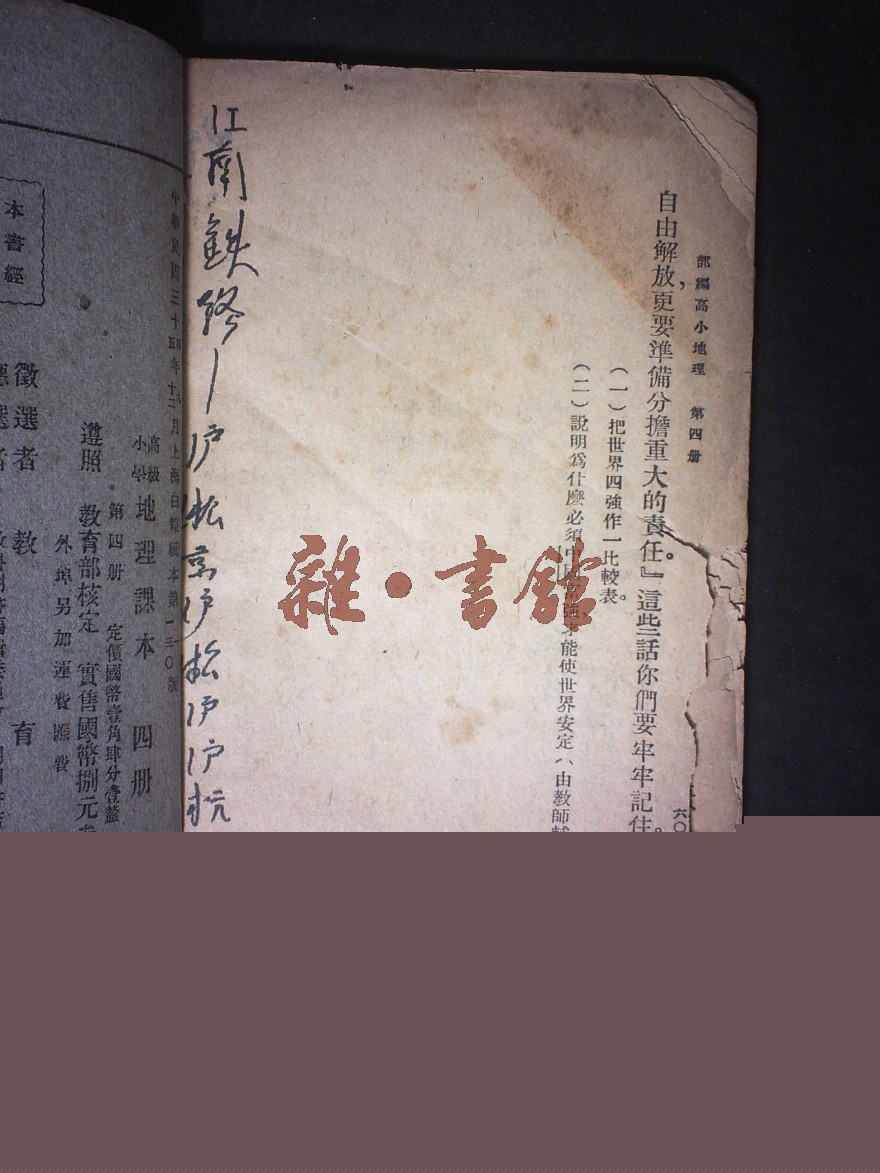 部編高小地理　第四册
六〇
自由解放，更要準備分擔重大的責任。』這些話你們要牢牢記住。
（一）把世界四強作一比較表。
（二）說明爲什麼必須中國富強，才能使世界安定（由教師
江南鉄路—沪松京沪松沪沪杭
雜·書館
月上海白報紙本第一三〇版
高級小學 地理課本　四册
第四册　定價國幣壹角肆分壹釐
遵照　教育部核定　實售國幣捌元
外埠另加運費匯費
徵選者　教　育
本書經